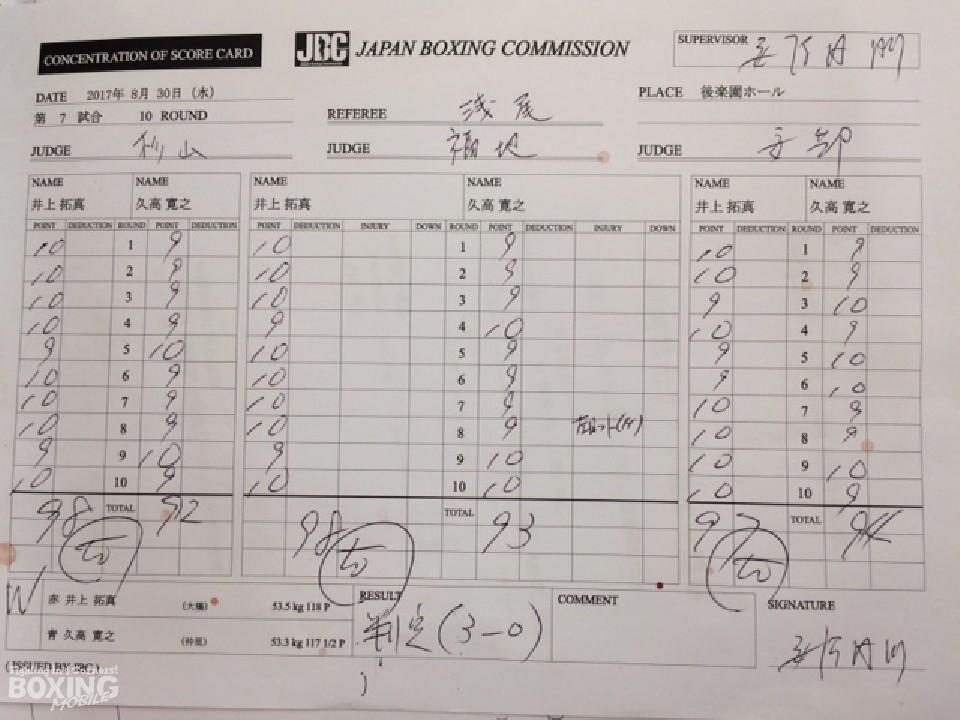 CONCENTRATION OF SCORE CARD
JBC JAPAN BOXING COMMISSION
SUPERVISOR
DATE 2017年 8月 30日 (水)
PLACE 後楽園ホール
第 7 試合 10 ROUND
REFEREE 浅尾
JUDGE 杉山
JUDGE 福地
JUDGE
NAME NAME NAME NAME NAME NAME
井上 拓真 久高 寛之 井上 拓真 久高 寛之 井上 拓真 久高 寛之
POINT DEDUCTION ROUND POINT DEDUCTION POINT DEDUCTION INJURY DOWN ROUND POINT DEDUCTION INJURY DOWN POINT DEDUCTION ROUND POINT DEDUCTION
10 1 9 10 1 9 10 1 9
10 2 9 10 2 9 10 2 9
10 3 9 10 3 9 9 3 10
10 4 9 9 4 10 10 4 9
9 5 10 10 5 9 9 5 10
10 6 9 10 6 9 9 6 10
10 7 9 10 7 9 10 7 9
10 8 9 10 8 9 10 8 9
9 9 10 9 9 10 10 9 10
10 10 9 10 10 10 10 10 9
98 TOTAL 92 98 TOTAL 93 97 TOTAL 94
W 赤 井上 拓真 (大橋) 53.5 kg 118 P
青 久高 寛之 (仲里) 53.3 kg 117 1/2 P
RESULT
判定(3-0)
COMMENT
SIGNATURE
(ISSUED BY JBC)
Fighting in 4 Corners!
BOXING
MOBILE